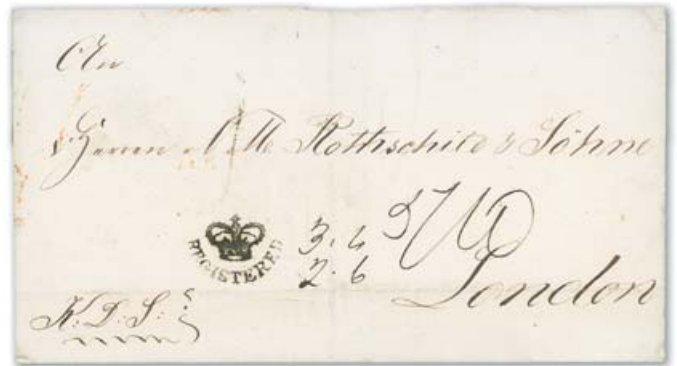 An
Herren N M Rothschild & Söhne
REGISTERED
3.4
2.6
London
K: D: S: